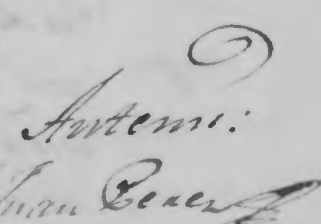 Antemi:
Juan Perez